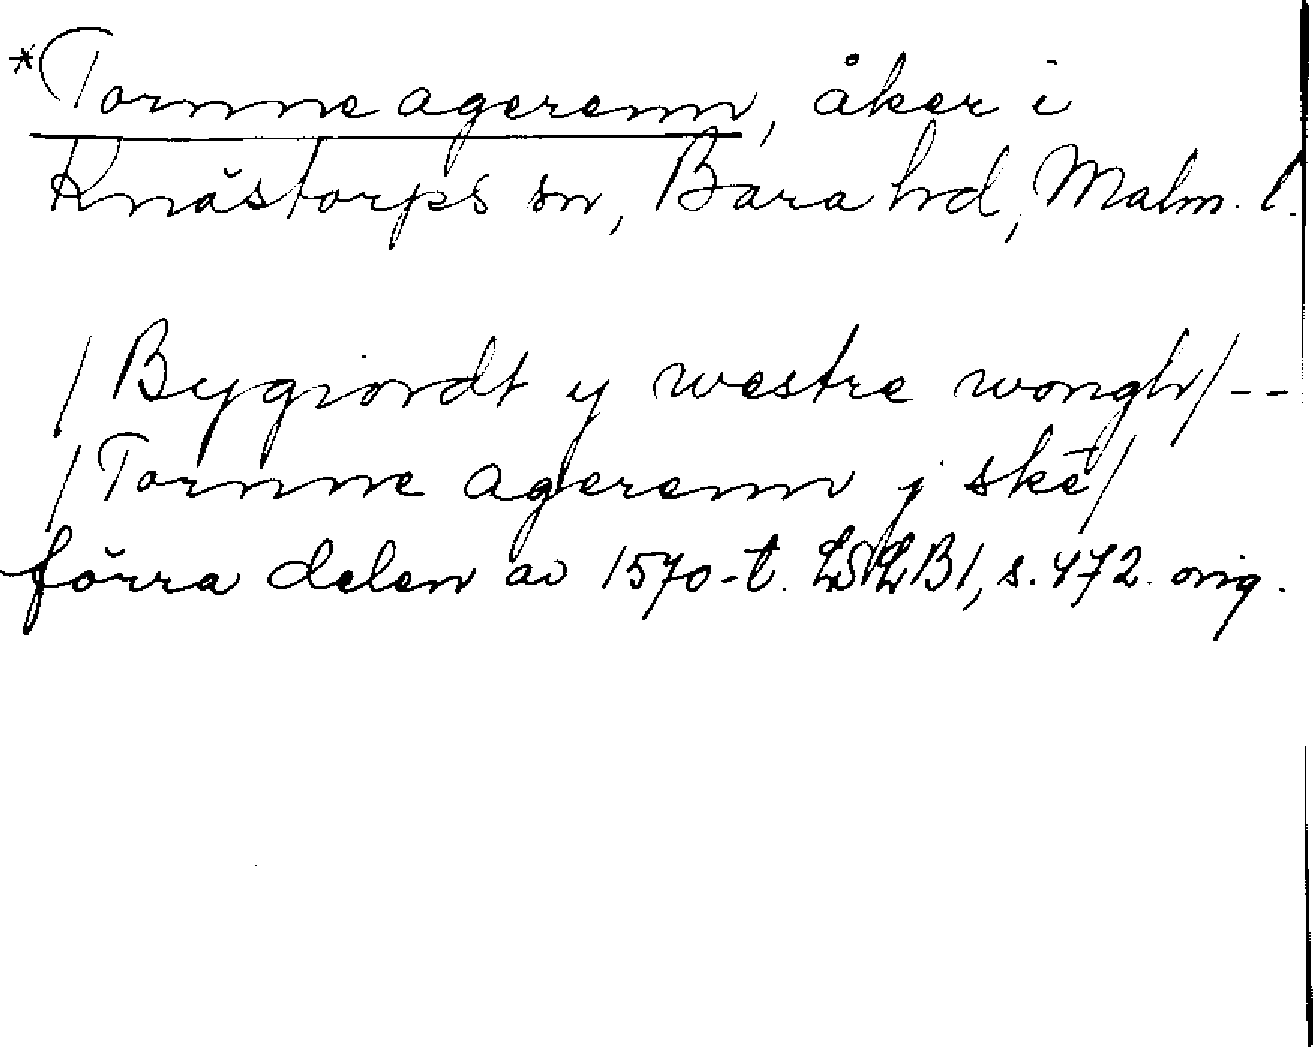 *Tornne agerenn, åker i
Knästorps sn, Bara hd, Malm. l.
/Bygiordt y westre wongh/--
/Tornne agerenn j skē/
förra delen av 1570-t. LSLB1, s. 472. orig.